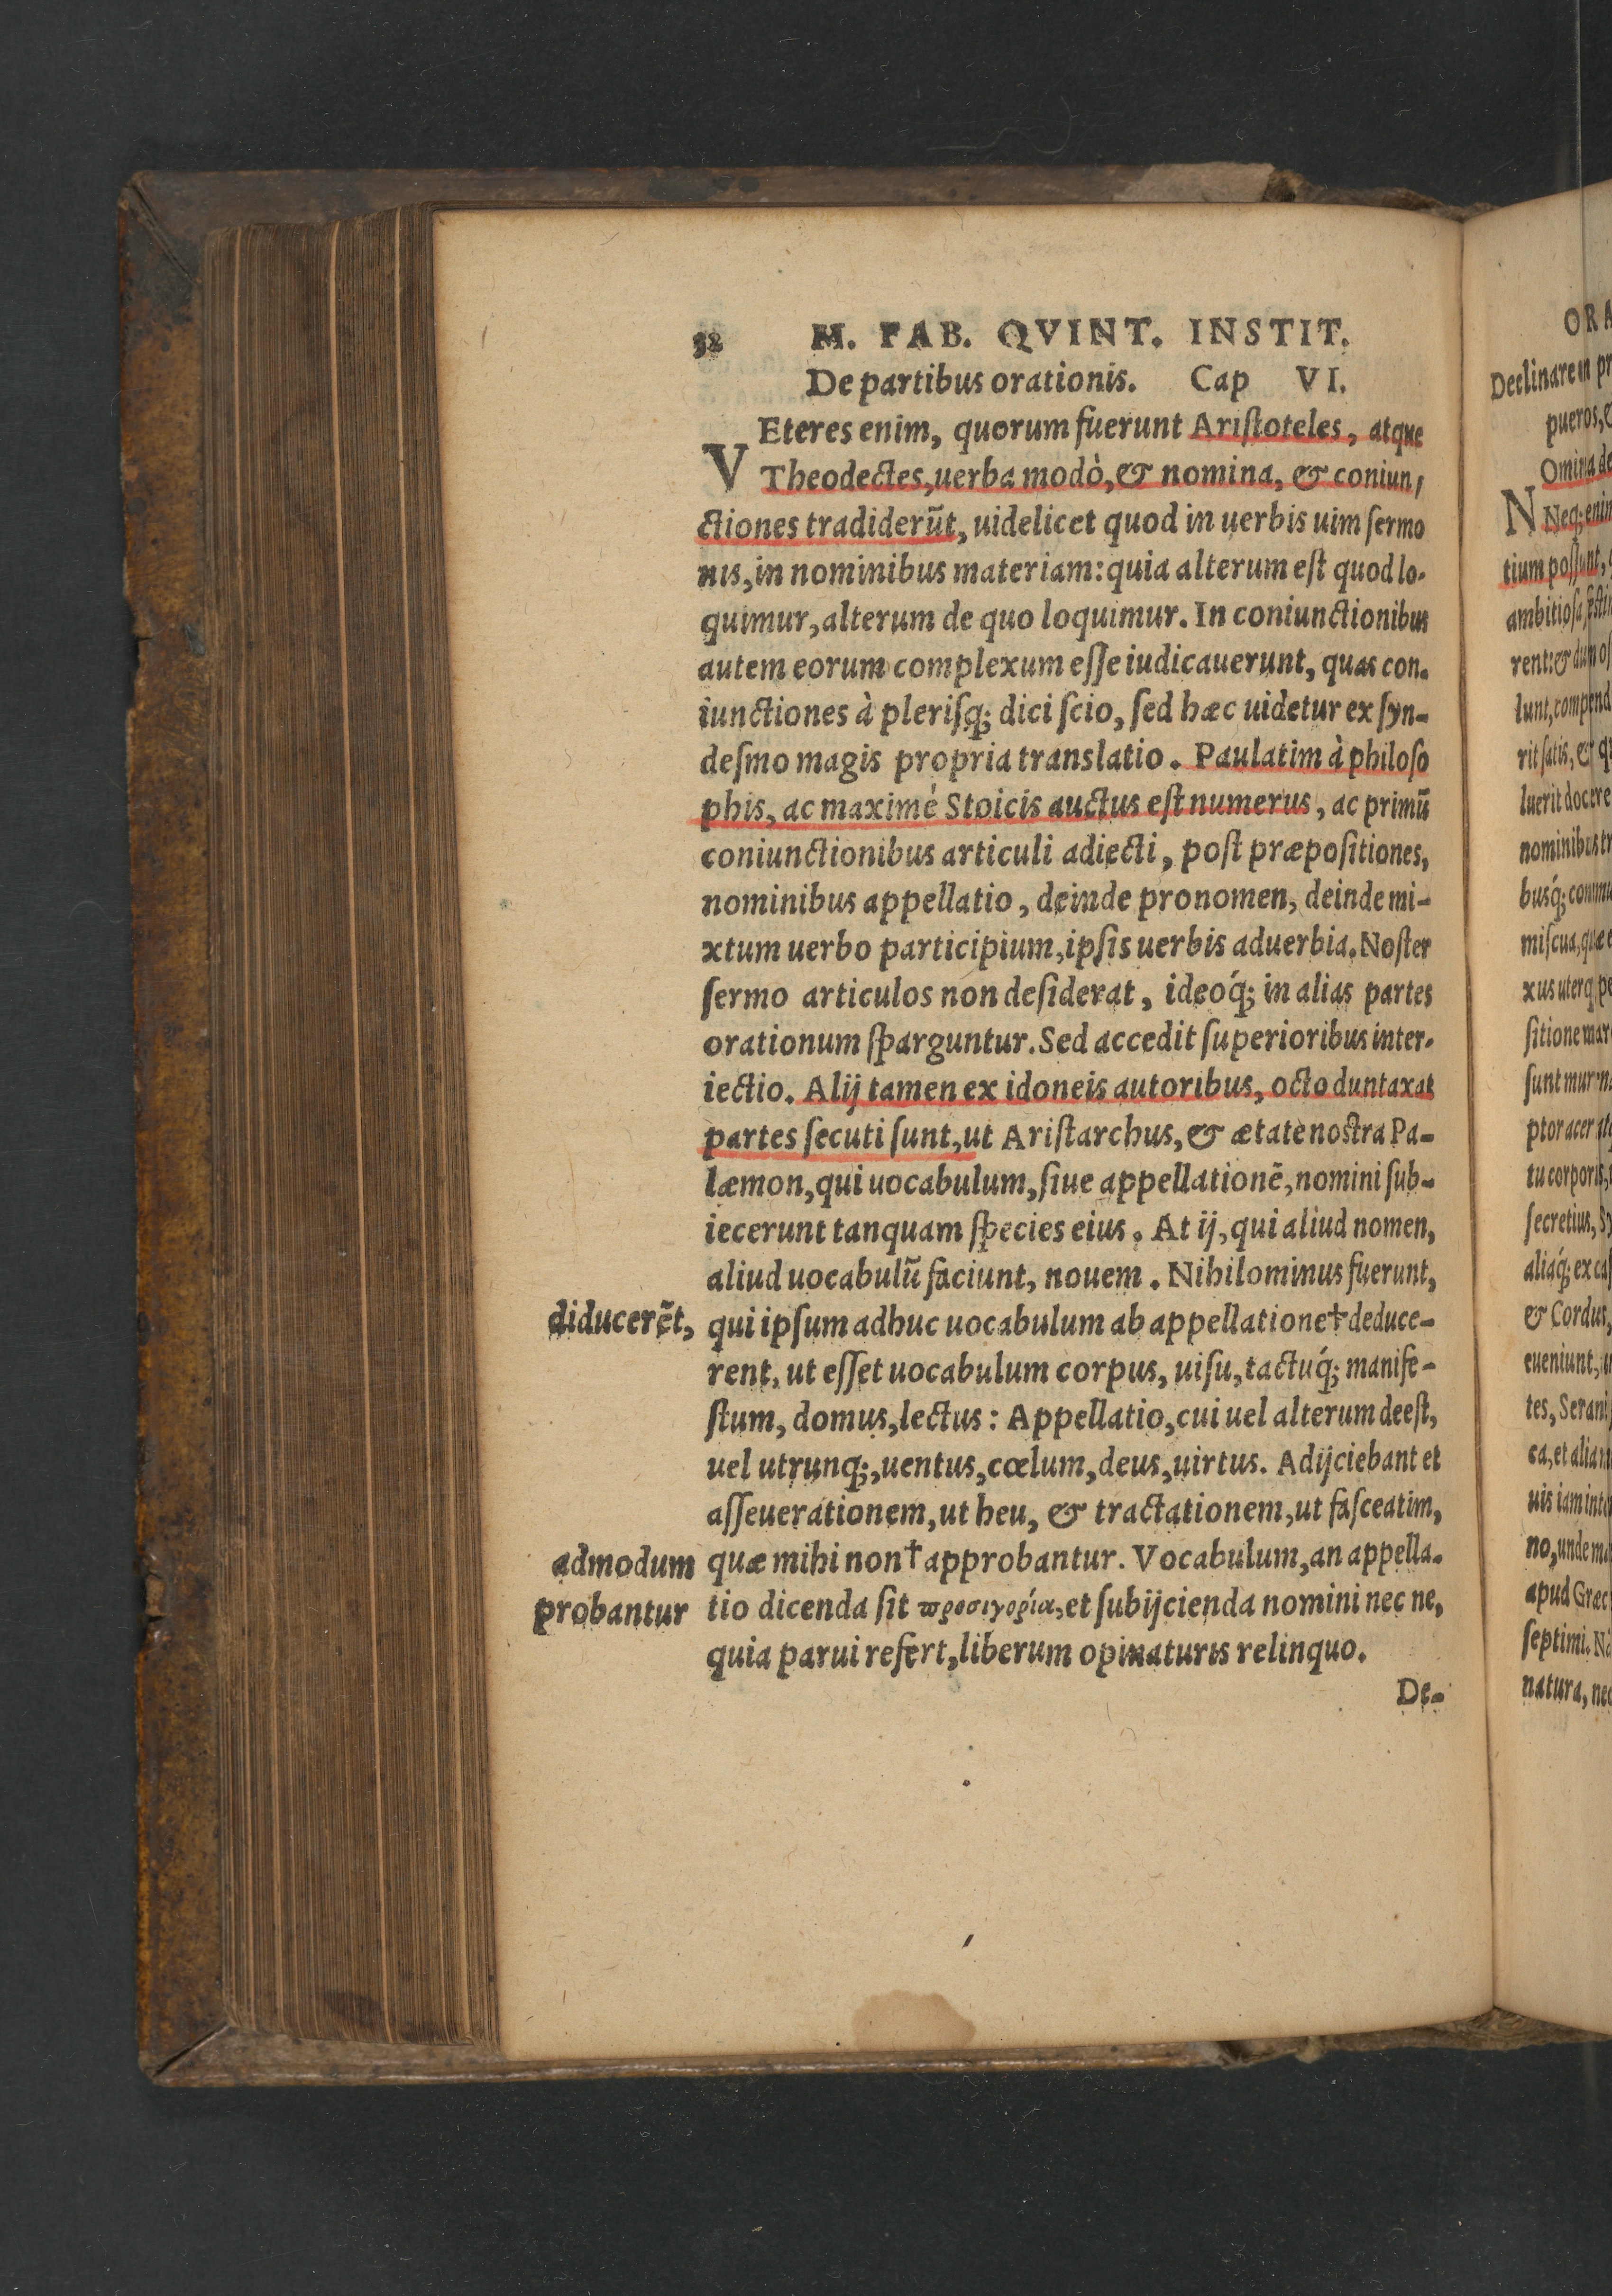 32 M. FAB. QVINT. INSTIT.
De partibus orationis. Cap VI.
VEteres enim, quorum fuerunt Aristoteles, atque
Theodectes, uerba modò, & nomina, & coniun,
ctiones tradiderūt, uidelicet quod in uerbis uim sermo
nis, in nominibus materiam: quia alterum est quod lo-
quimur, alterum de quo loquimur. In coniunctionibus
autem eorum complexum esse iudicauerunt, quas con-
iunctiones à plerisq; dici scio, sed hæc uidetur ex syn-
desmo magis propria translatio. Paulatim à philoso
phis, ac maximè Stoicis auctus est numerus, ac primū
coniunctionibus articuli adiecti, post præpositiones,
nominibus appellatio, deinde pronomen, deinde mi-
xtum uerbo participium, ipsis uerbis aduerbia. Noster
sermo articulos non desiderat, ideóq; in alias partes
orationum sparguntur. Sed accedit superioribus inter-
iectio. Alij tamen ex idoneis autoribus, octo duntaxat
partes secuti sunt, ut Aristarchus, & ætate nostra Pa-
læmon, qui uocabulum, siue appellationē, nomini sub-
iecerunt tanquam species eius. At ij, qui aliud nomen,
aliud uocabulū faciunt, nouem. Nihilominus fuerunt,
diducerēt, qui ipsum adhuc uocabulum ab appellatione† deduce-
rent, ut esset uocabulum corpus, uisu, tactuq́; manife-
stum, domus, lectus: Appellatio, cui uel alterum deest,
uel utrunq;, uentus, cœlum, deus, uirtus. Adijciebant et
asseuerationem, ut heu, & tractationem, ut fasceatim,
admodum quæ mihi non† approbantur. Vocabulum, an appella-
probantur tio dicenda sit προσηγορία, et subijcienda nomini nec ne,
quia parui refert, liberum opinaturis relinquo.
De-
ORA
Declinare in pr
pueros,
Omina de
N Neq; enim
tium possunt,
ambitiosa
rent: & dum
lunt, compend
rit satis, & q
luerit docere
nominibus tr
busq́; commu
miscua, quæ
xus uterq
sitione mar
sunt
ptor acer
tu corporis,
secretius,
aliáq; ex
& Cordus,
eueniunt,
tes, Serani
ca, et alia
uis iam
no, unde
apud Græc
septimi.
natura, nec